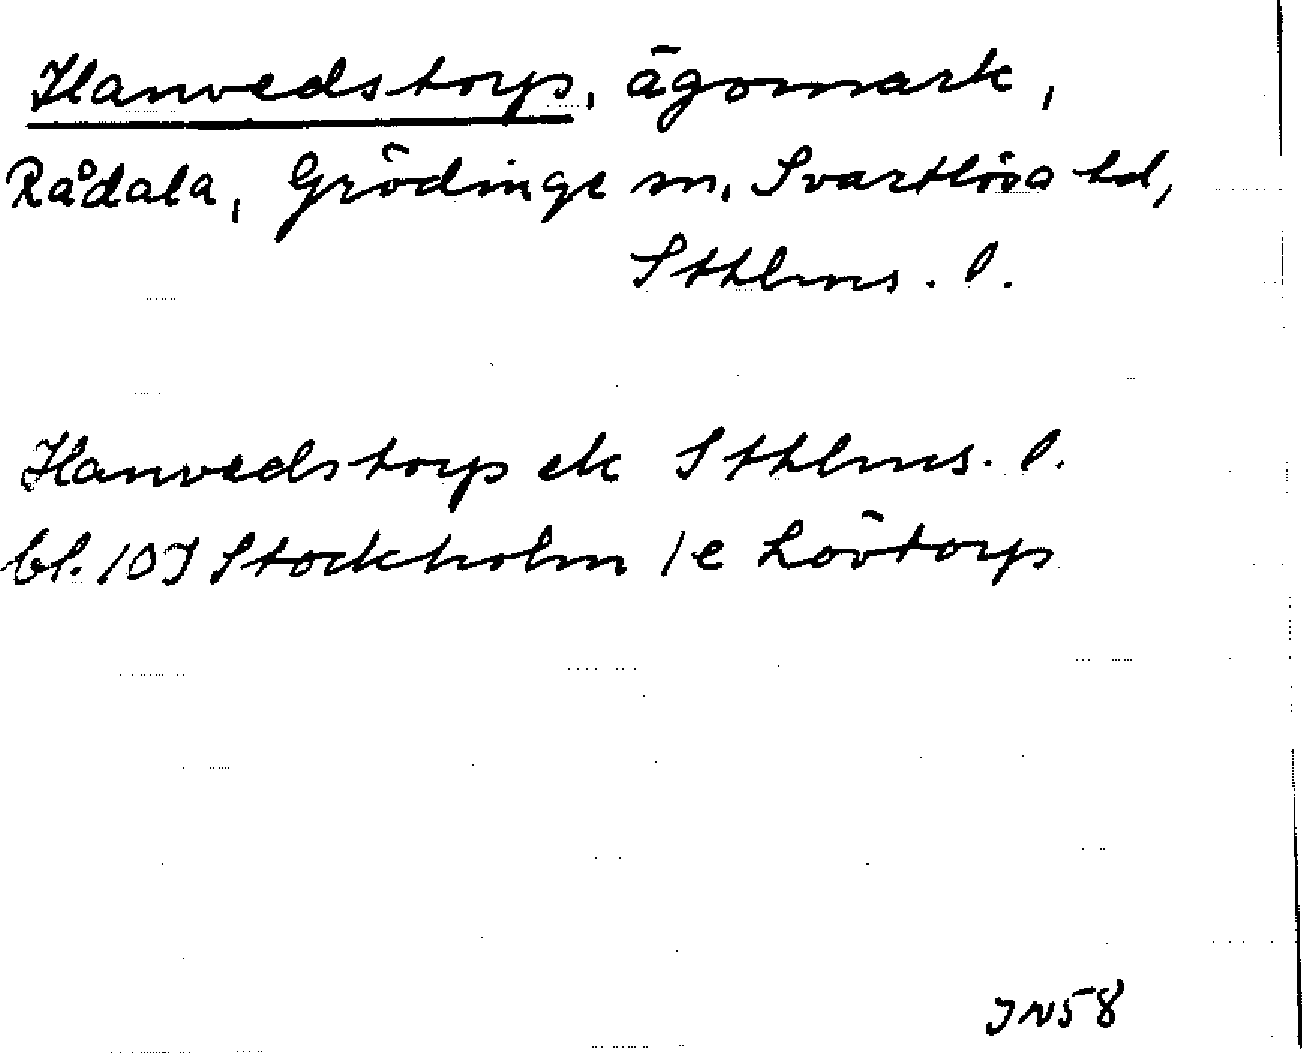 Hanvedstorp, ägomark,
Rådala, Grödinge sn, Svartlösa hd,
Sthlms. l.
Hanvedstorp ek Sthlms. l.
bl. 10J Stockholm 1e Lövtorp
JN58